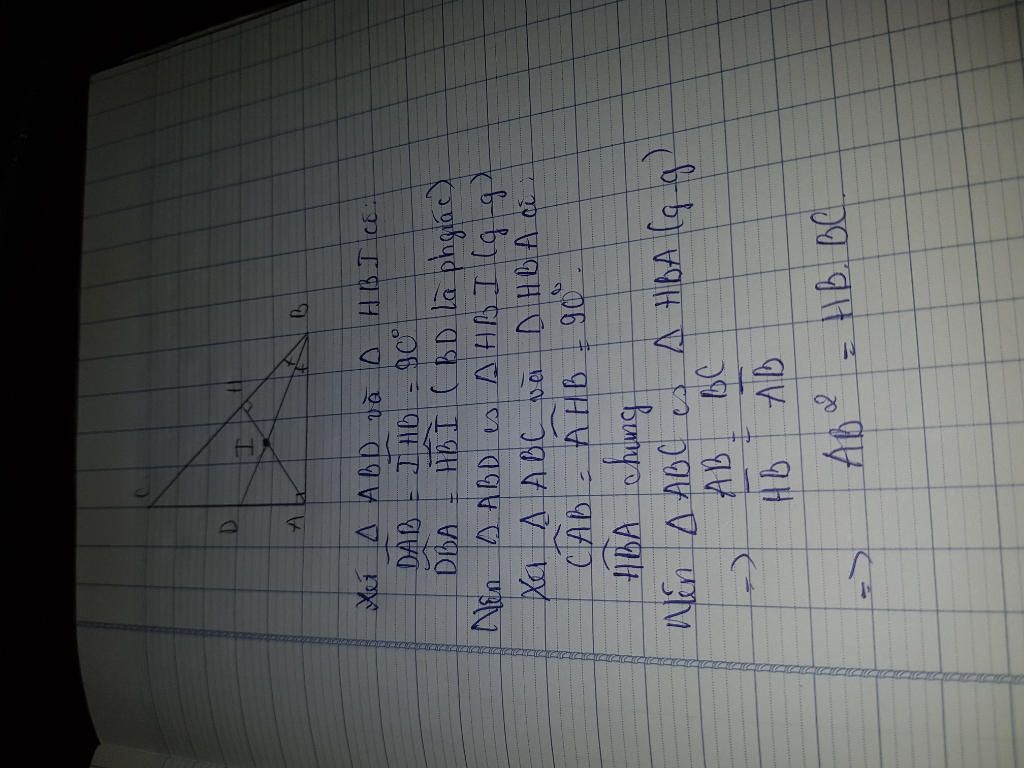 C
D
I
H
A
B
Xét Δ ABD và Δ HBI có:
DAB = IHB = 90°
DBA = HBI (BD là phgiác)
Nên Δ ABD ∽ Δ HBI (g-g)
Xét Δ ABC và Δ HBA có:
CAB = AHB = 90°.
HBA chung
Nên Δ ABC ∽ Δ HBA (g-g)
=> AB/HB = BC/AB
=> AB² = HB. BC.